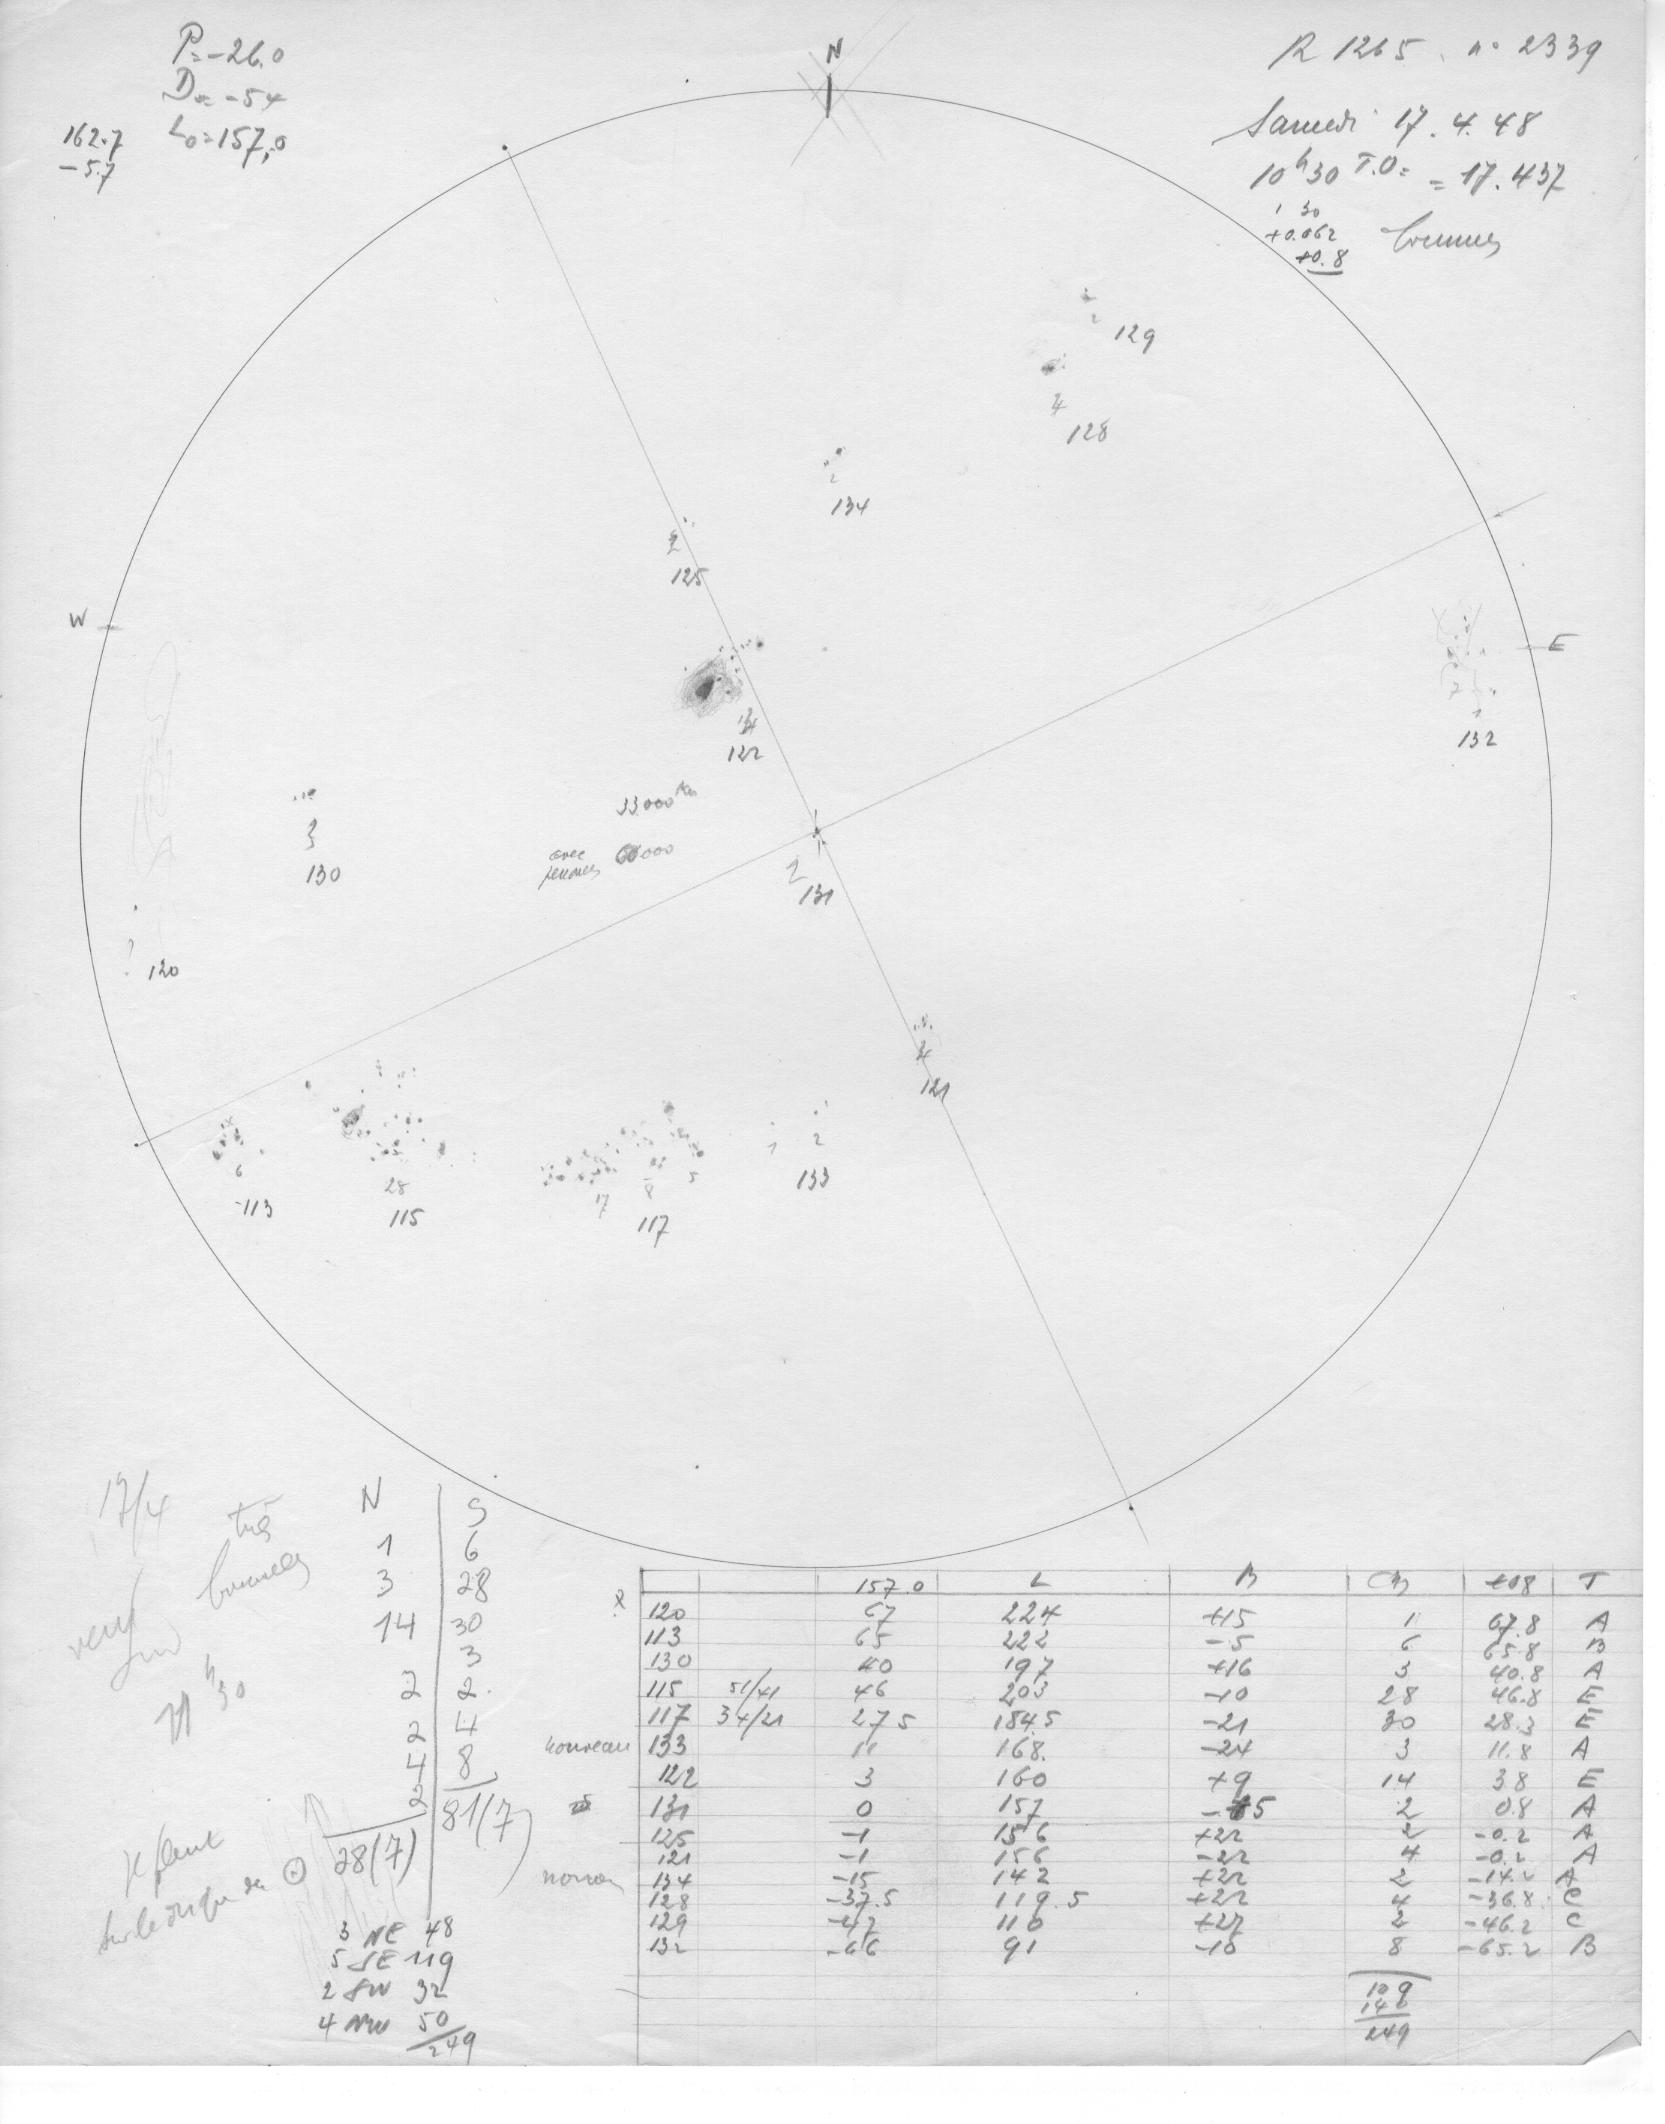 P=-26.0
D=-5.4
L0=157,0
162.7
-5.7
N
R 1265. n° 2339
Samedi 17.4.48
10h30 T.O. = 17.437
1 30
+0.062
+0.8
129
4
128
2
134
2
125
W
E
14
122
7
1
132
33.000 km
avec 60000
3
130
2
131
120
4
121
6
113
28
115
17 8 5
117
1 2
133
17/4
très
brumeux
N S
1 6
3 28
14 30
3
2 2
2 4
4 8
2
28(7) 81(7)
h30
Il pleut
sur le disque du ⊙
3 NE 48
5 SE 119
2 SW 32
4 NW 50
249
157.0 L B +0.8 T
120 67 224 +15 1 67.8 A
113 65 222 -5 6 65.8 B
130 40 197 +16 3 40.8 A
115 51/41 46 203 -10 28 46.8 E
117 34/21 27.5 184.5 -21 30 28.3 E
nouveau 133 11 168. -24 3 11.8 A
122 3 160 +9 14 3.8 E
131 0 157 -5 2 0.8 A
125 -1 156 +22 2 -0.2 A
121 -1 156 -22 4 -0.2 A
134 -15 142 +22 2 -14.2 A
128 -37.5 119.5 +22 4 -36.8 C
129 -47 110 +27 2 -46.2 C
132 -66 91 -10 8 -65.2 B
109
140
249